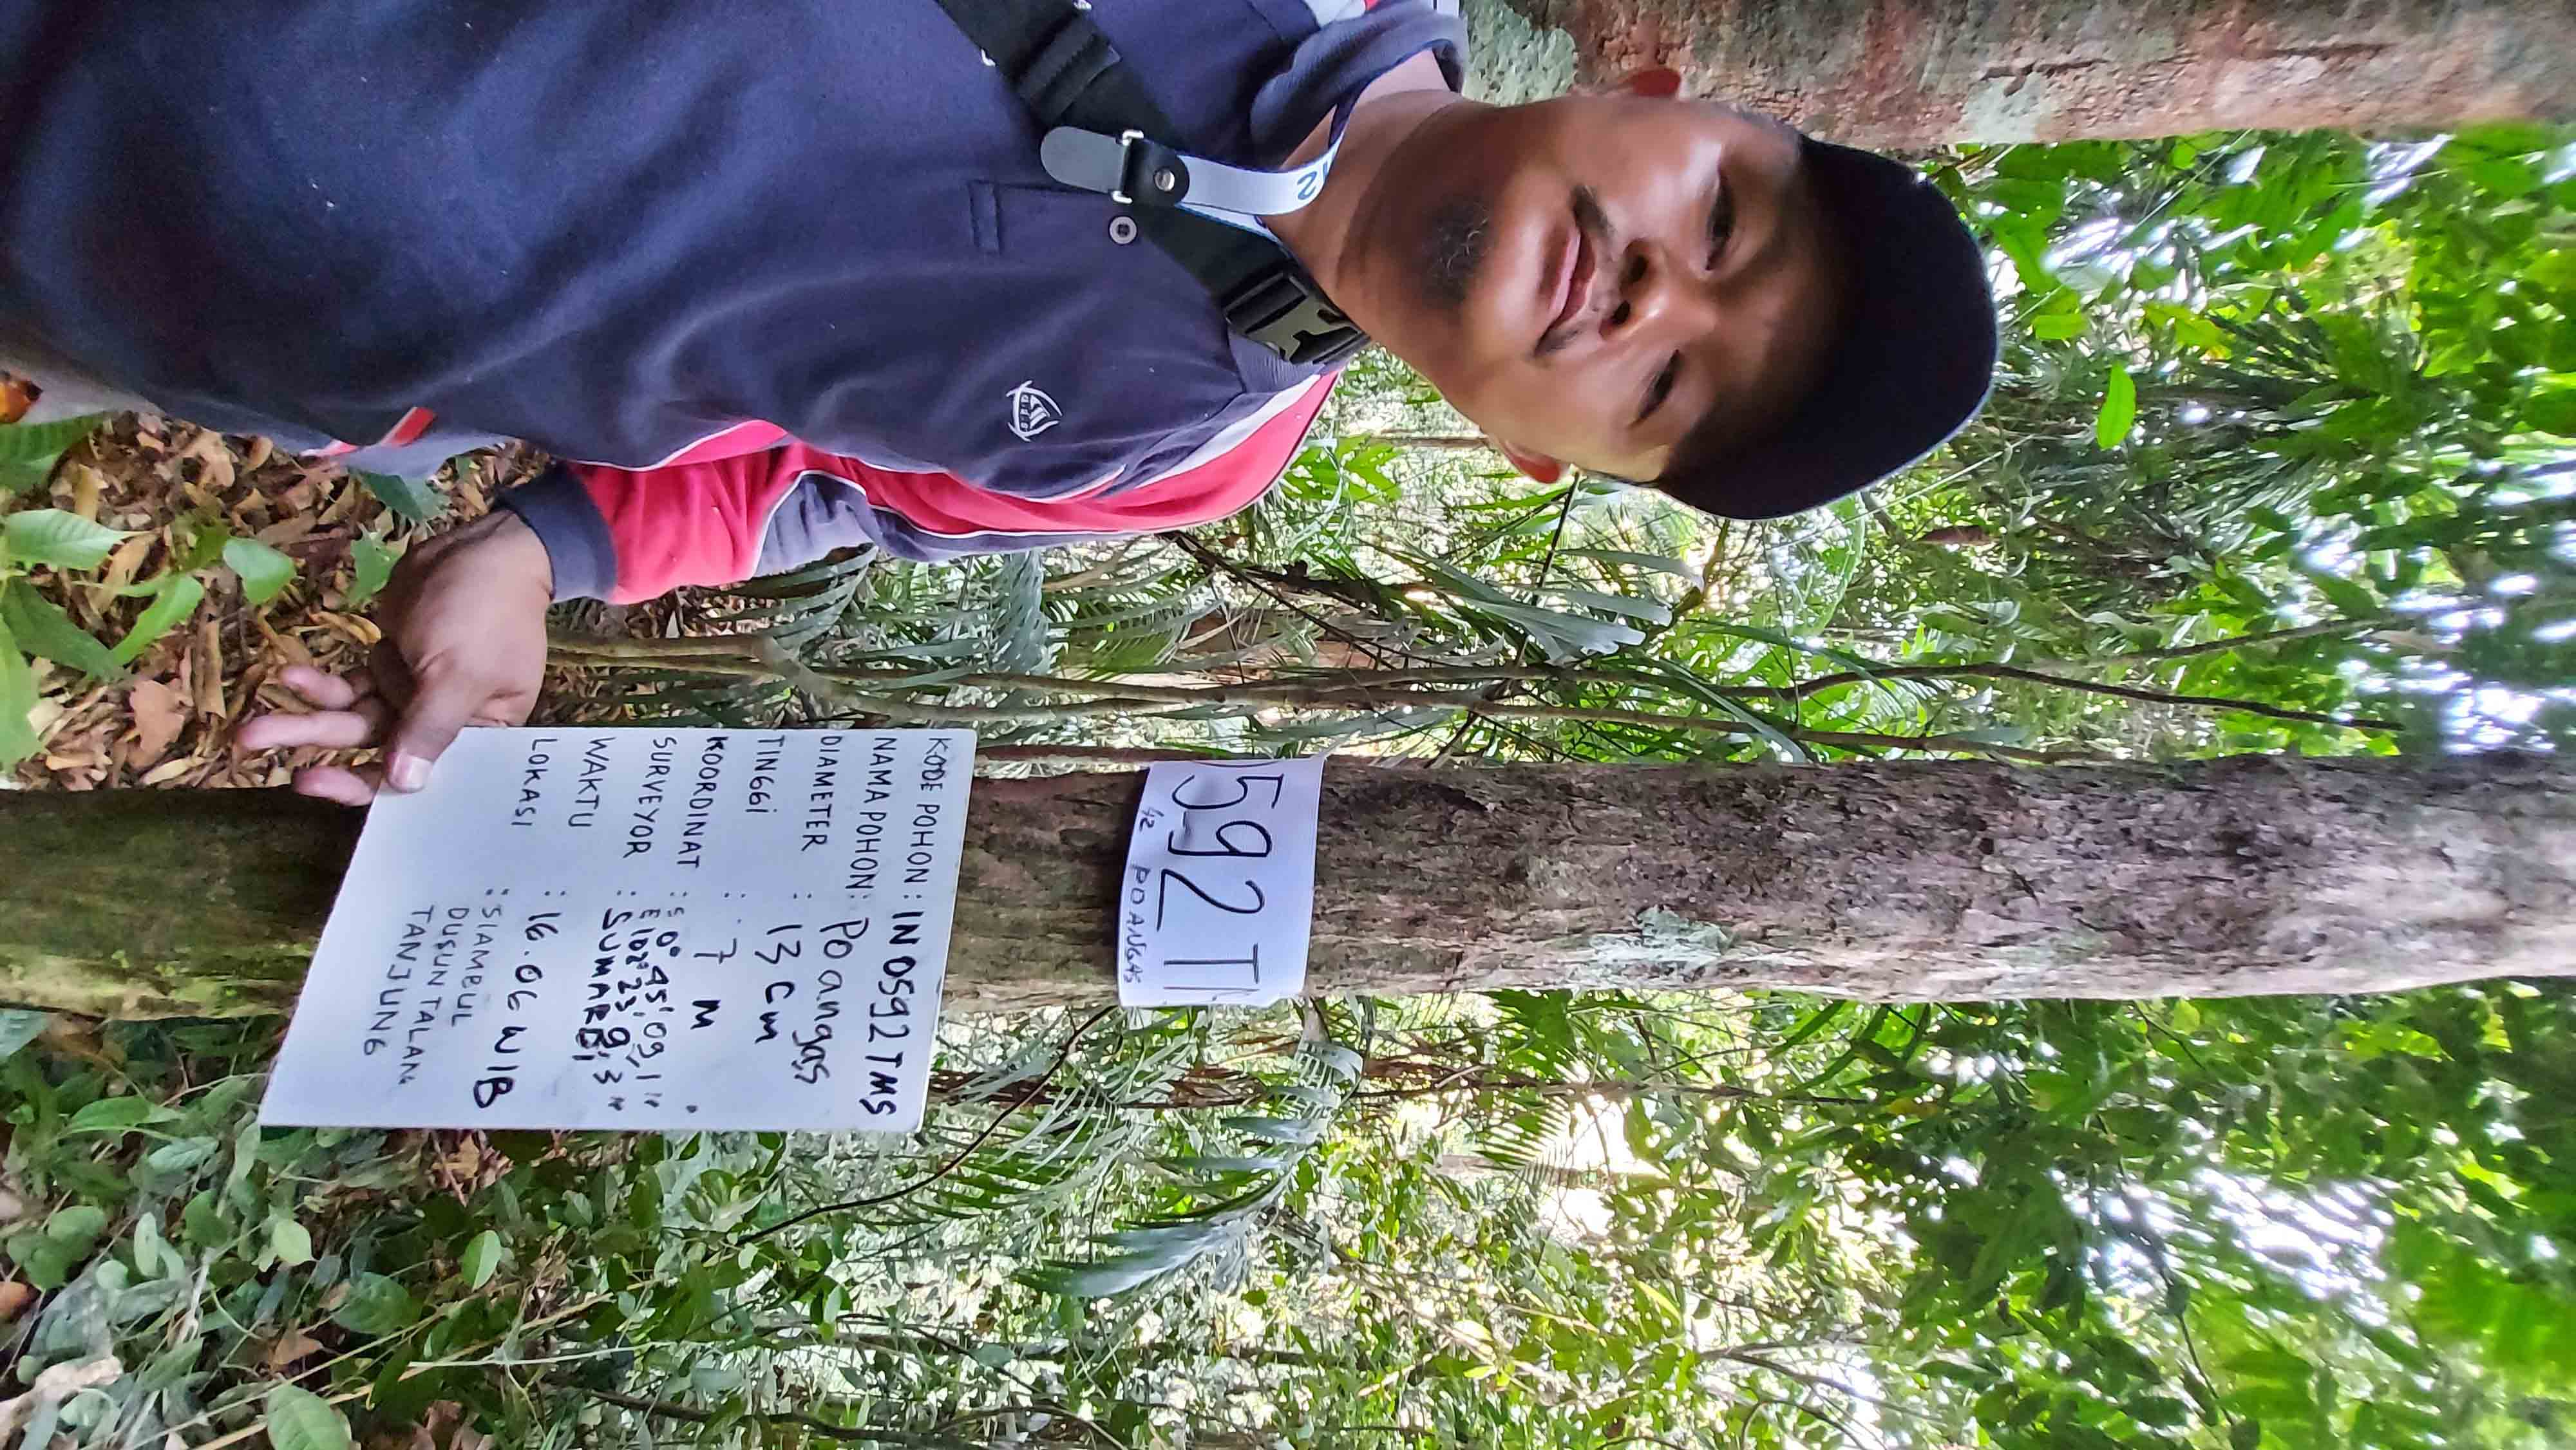 KODE POHON : IN 0592 TMS
NAMA POHON : Poangas
DIAMETER : 13 Cm
TINGGI : 7 M
KOORDINAT : S 0° 45' 09,1"
E 102° 23' 9,3"
SURVEYOR : SUMARDI
WAKTU : 16.06 WIB
LOKASI : SIAMBUL
DUSUN TALANG
TANJUNG
592 T
POANGAS